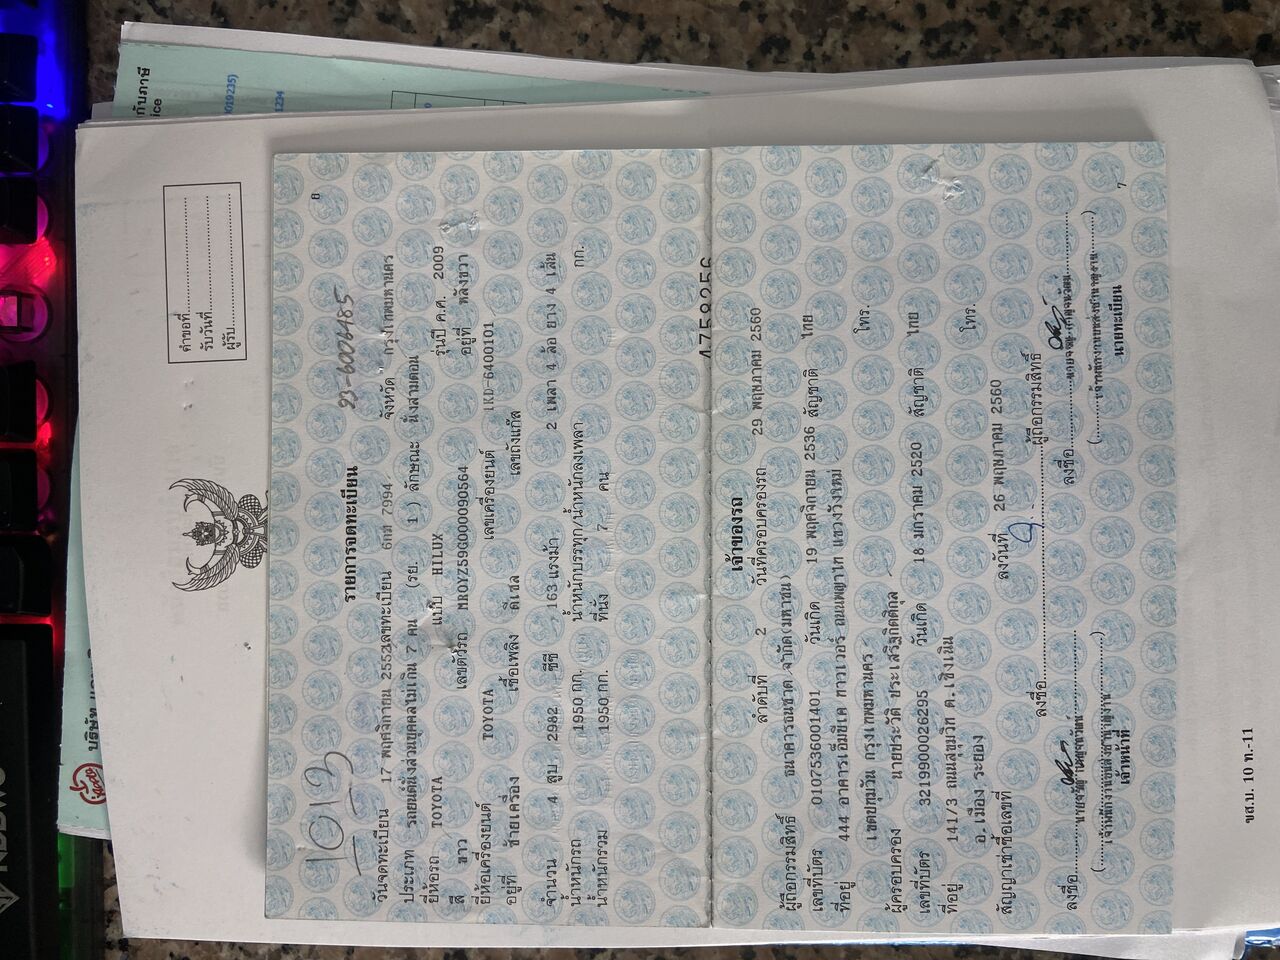 คำขอที่
รับวันที่
ผู้รับ
6
1013
93-6004485
รายการจดทะเบียน
วันจดทะเบียน 17 พฤศจิกายน 2552 เลขทะเบียน 6กท 7994 จังหวัด กรุงเทพมหานคร
ประเภท รถยนต์นั่งส่วนบุคคลไม่เกิน 7 คน (รย. 1) ลักษณะ นั่งสามตอน
ยี่ห้อรถ TOYOTA แบบ HILUX รุ่นปี ค.ศ. 2009
สี ขาว เลขตัวรถ MR0YZ59G000090564 อยู่ที่ หลังขวา
ยี่ห้อเครื่องยนต์ TOYOTA เลขเครื่องยนต์ 1KD-6400101
อยู่ที่ ซ้ายเครื่อง เชื้อเพลิง ดีเซล เลขถังแก๊ส
จำนวน 4 สูบ 2982 ซีซี 163 แรงม้า 2 เพลา 4 ล้อ ยาง 4 เส้น
น้ำหนักรถ 1950 กก. น้ำหนักบรรทุก/น้ำหนักลงเพลา กก.
น้ำหนักรวม 1950 กก. ที่นั่ง 7 คน
เจ้าของรถ
ลำดับที่ 2 วันที่ครอบครองรถ 29 พฤษภาคม 2560
ผู้ถือกรรมสิทธิ์ ธนาคารธนชาต จำกัด(มหาชน)
เลขที่บัตร 0107536001401 วันเกิด 19 พฤศจิกายน 2536 สัญชาติ ไทย
ที่อยู่ 444 อาคารเอ็มบีเค ทาวเวอร์ ถนนพญาไท แขวงวังใหม่
เขตปทุมวัน กรุงเทพมหานคร โทร.
ผู้ครอบครอง นายประวัติ ประเสริฐกิตติกุล
เลขที่บัตร 3219900026295 วันเกิด 18 มกราคม 2520 สัญชาติ ไทย
ที่อยู่ 141/3 ถนนสุขุมวิท ต.เชิงเนิน
อ.เมือง ระยอง โทร.
สัญญาเช่าซื้อเลขที่ ลงวันที่ 26 พฤษภาคม 2560
ลงชื่อ ผู้ถือกรรมสิทธิ์
ลงชื่อ ลงชื่อ
เจ้าหน้าที่ นายทะเบียน
7
ขส.บ. 10 ท.-11